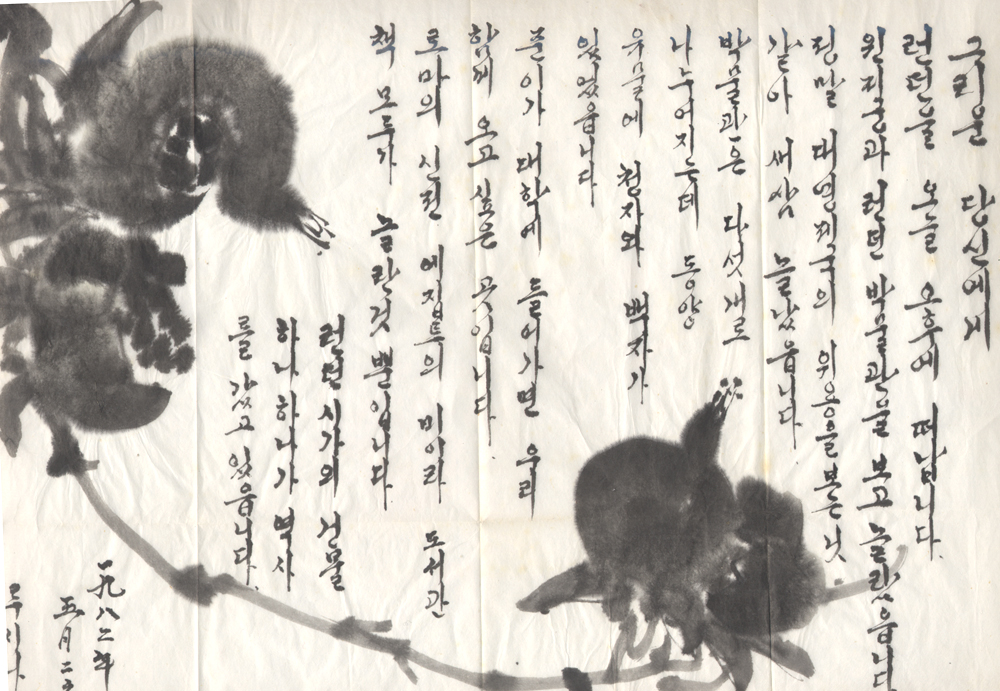 그리운 당신에게
런던을 오늘 오후에 떠납니다
윈저궁과 런던 박물관을 보고 놀랐읍니다
정말 대영제국의 위용을 보는 것
같아 새삼 놀났읍니다
박물관은 다섯 개로
나누어지는데 동양
유물에 청자와 백자가
있었읍니다
준이가 대학에 들어가면 우리
함께 오고 싶은 곳입니다
로마의 신전 에집트의 미이라 도서관
책 모두가 놀란것 뿐입니다
런던 시가의 건물
하나 하나가 역사
를 갖고 있읍니다
一九八二年
五月二